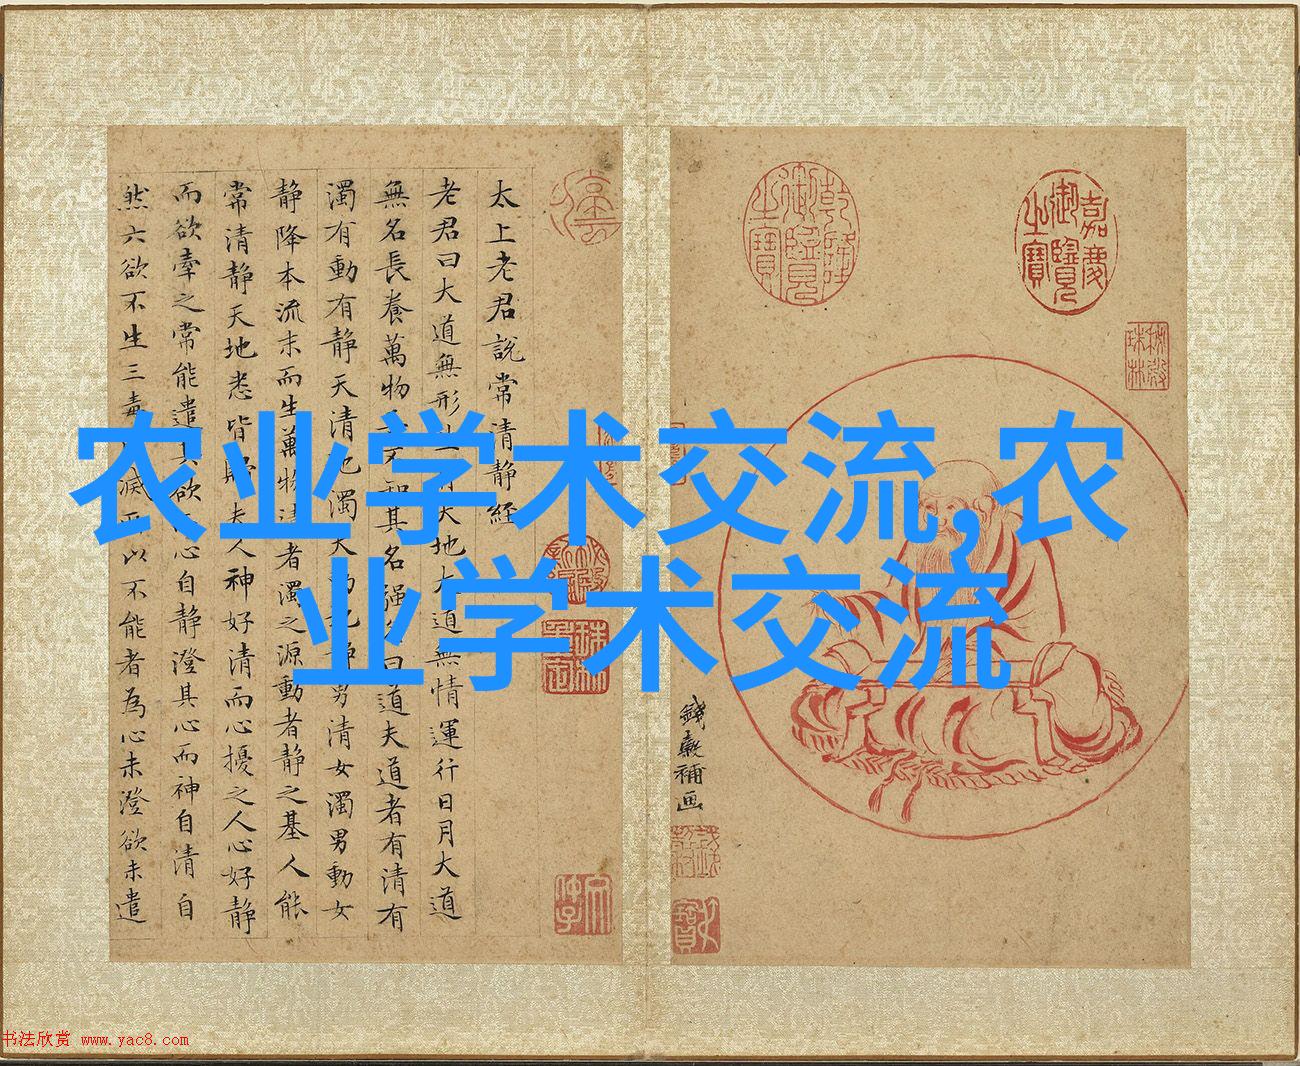 农业学术交流,农
业学术交流
太上老君說常清静經
老君曰大道無形生育天地大道無情運行日月大道
無名長養萬物吾不知其名强名曰道夫道者有清有
濁有動有静天清地濁天動地静男清女濁男動女
静降本流末而生萬物清者濁之源動者静之基人能
常清静天地悉皆歸夫人神好清而心擾之人心好静
而欲牽之常能遣其欲而心自静澄其心而神自清自
然六欲不生三毒消滅所以不能者為心未澄欲未遣
乾隆御覽之寶
嘉慶御覽之寶
秘殿珠林
錢縠補画
书法欣赏 www.yac8.com